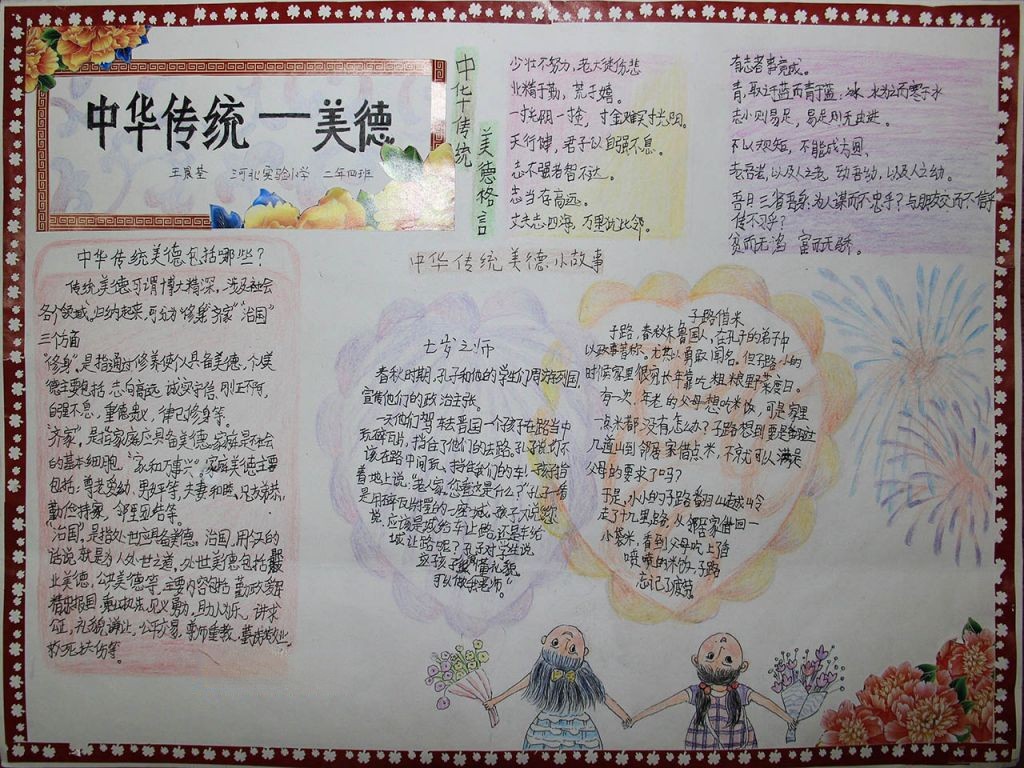 中华传统一美德
河北实验小学 二年四班
中华传统
美德格言
少壮不努力,老大徒伤悲
业精于勤,荒于嬉。
一寸光阴一寸金,寸金难买寸光阴。
天行健,君子以自强不息。
志不强者智不达。
志当存高远。
丈夫志四海,万里犹比邻。
有志者事竟成。
青,取之于蓝而青于蓝;冰,水为之而寒于水
志小则易足,易足则无由进。
不以规矩,不能成方圆。
老吾老,以及人之老,幼吾幼,以及人之幼。
吾日三省吾身:为人谋而不忠乎?与朋友交而不信乎
传不习乎?
贫而无谄 富而无骄。
中华传统美德包括哪些?
传统美德可谓博大精深,涉及社会
各个领域。归纳起来,可分为“修身”“齐家”“治国”
三个方面
“修身”是指通过修养使个人具备美德,个人美
德主要包括:志向高远,诚实守信,刚正不阿,
自强不息,重德贵义,律己修身等。
“齐家”,是指家庭应具备美德,家庭是社会
的基本细胞,“家和万事兴”,家庭美德主要
包括:尊老爱幼,男女平等,夫妻和睦,兄友弟恭,
勤俭持家,邻里团结等。
“治国”,是指处世应具备美德,治国,用今天的
话说就是为人处世之道。处世美德包括职
业美德,公共美德等,主要内容包括:勤政爱民
精忠报国,秉公执法,见义勇为,助人为乐,讲求
公正,礼貌谦让,公平交易,尊师重教,勤学敬业,
救死扶伤等。
中华传统美德小故事
七岁之师
春秋时期,孔子和他的学生们周游列国,
宣传他们的政治主张。
一天他们驾车去晋国一个孩子在路当中
玩碎瓦片,挡住了他们的去路。孔子说:你不
该在路中间玩,挡住我们的车!孩子指
着地上说:老人家,您看这是什么?孔子一看
是用碎瓦片摆的一座城。孩子又说:您
说,应该是城给车让路还是车给
城让路呢?孔子对学生说
这孩子懂礼貌,
可以做我老师。
子路借米
子路,春秋末鲁国人,在孔子的弟子中
以政事著称。尤其以勇敢闻名。但子路小的
时候家里很穷长年靠吃粗粮野菜度日。
有一次,年老的父母想吃米饭,可是家里
一点米都没有怎么办?子路想到要是翻过
几道山到邻居家借点米,不就可以满足
父母的要求了吗?
于是,小小的子路翻山越岭
走了十几里路,从邻居家借回一
小袋米,看到父母吃上香
喷喷的米饭,子路
忘记了疲劳